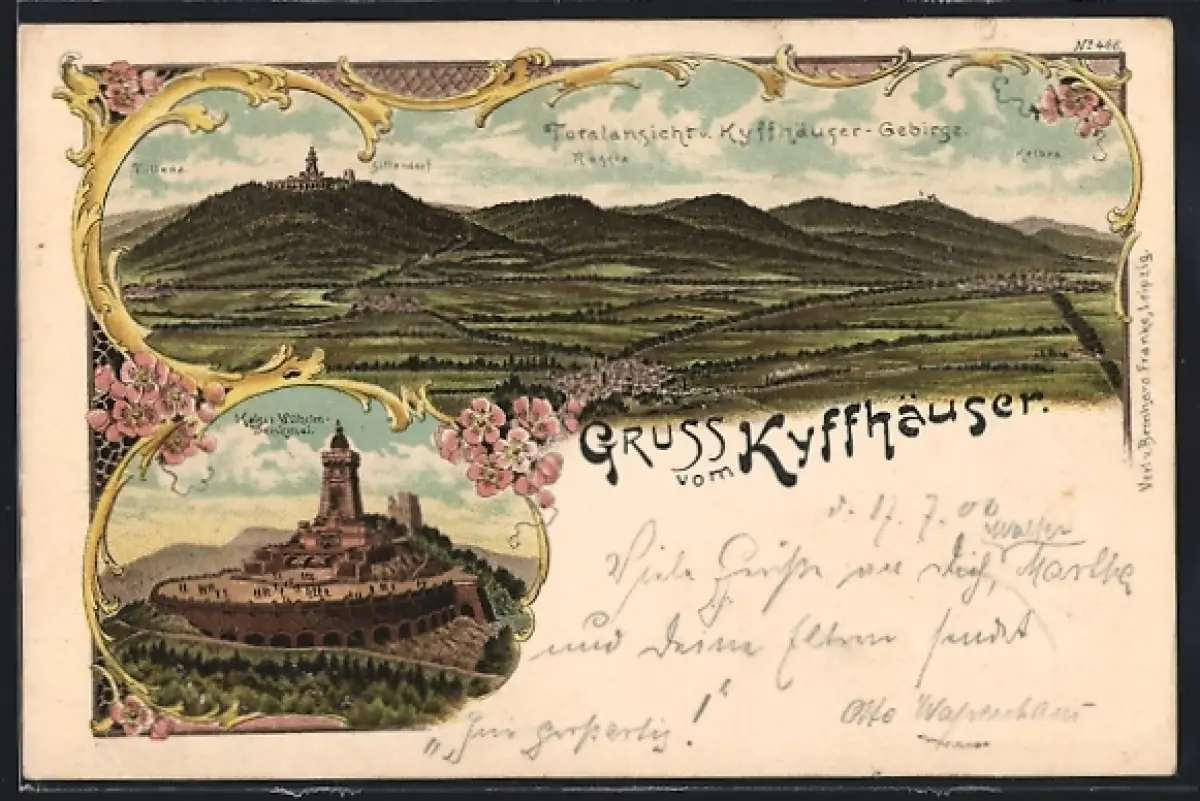 Nº 466.
Totalansicht v. Kyffhäuser-Gebirge.
Tilleda
Sittendorf
Rossla
Kelbra
Kaiser Wilhelm-
Denkmal.
Gruss
vom Kyffhäuser.
Verl. v. Bernhard Franke, Leipzig.
d. 17. 7. 00
Viele Grüße an Dich,
und Deine Eltern sendet
Otto
"Hier großartig!"